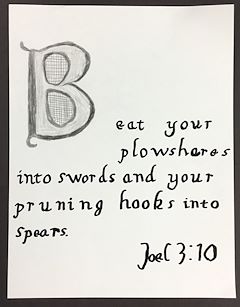 Beat your
plowshares
into swords and your
pruning hooks into
spears.
Joel 3:10